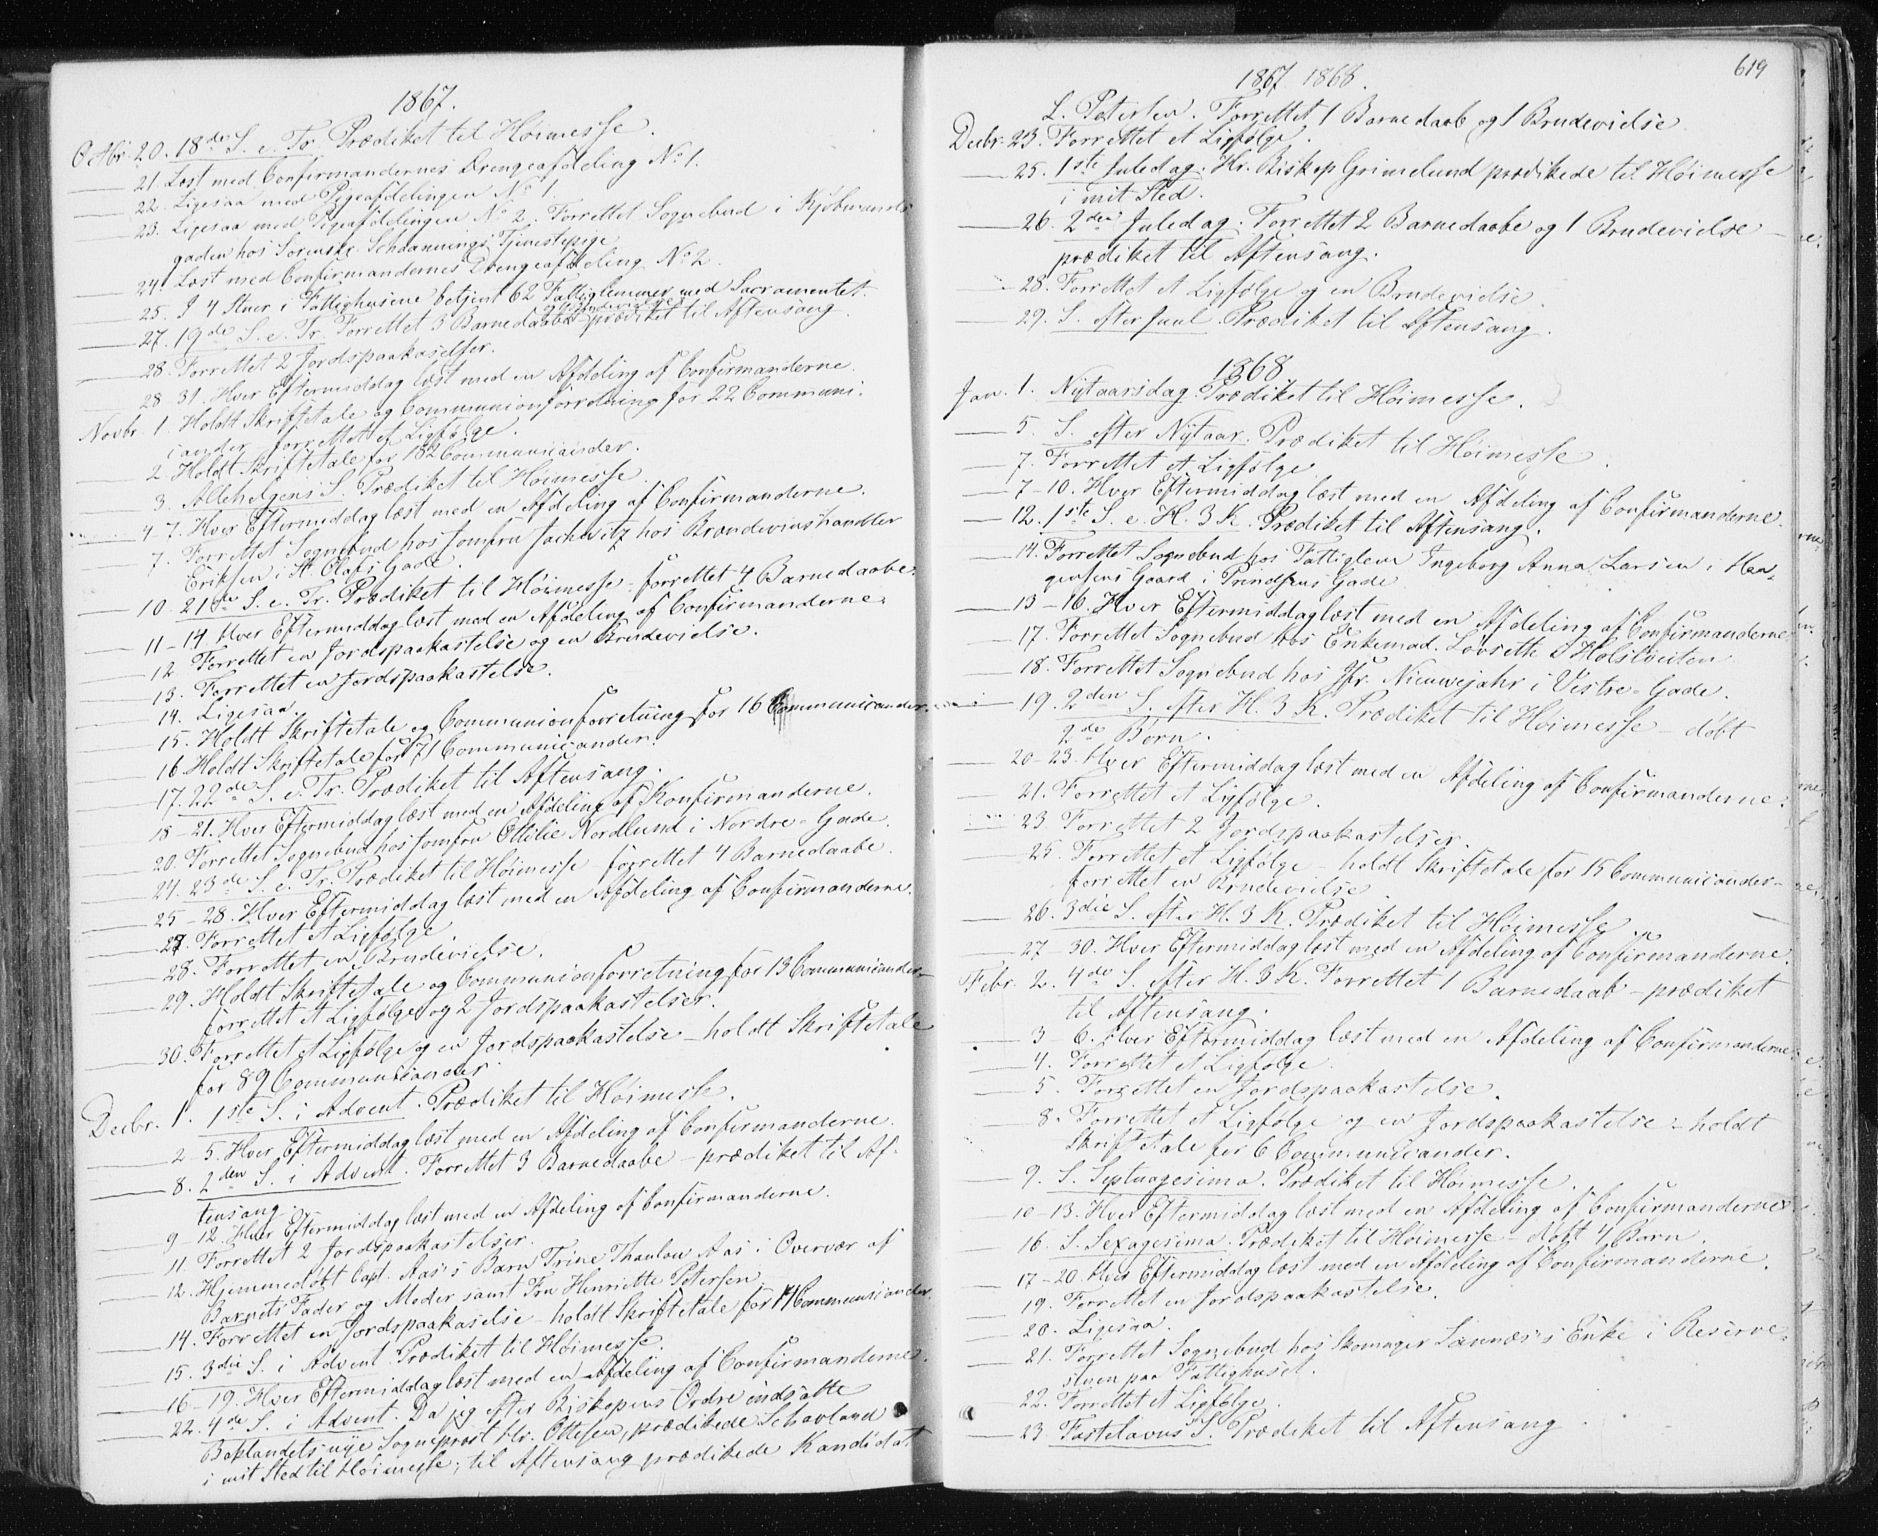 1867.
Octbr. 20. 18de S. e. Tr. Prædiket til Høimesse.
21. Læst med Confirmandernes Drengeafdeling No 1.
22. Ligesaa med Pigeafdelingen No 1
23. Ligesaa med Pigeafdelingen No 2. Forrettet Sognebud i Kjøbmands
gaden hos Sorenskr. Schdannings Tjenestepige
24. Læst med Confirmandernes Drengeafdeling No 2.
25. I 4 Stuer i Fattighusene betjent 62 Fattiglemmer med Sacramentet.
27. 19de S. e. Tr. Forrettet 3 Barnedaabe prædiket til Aftensang.
28. Forrettet 2 Jordspaakaselser.
28 31. Hver Eftermiddag læst med en Afdeling af Confirmanderne.
Novbr. 1. Holdt Skriftetale og Communionforretning for 22 Communi-
cander forrettet et Ligfølge.
2 Holdt Skriftetale for 182 Communicander.
3. Allehelgens S. Prædiket til Høimesse.
4 7. Hver Eftermiddag læst med en Afdeling af Confirmanderne.
7. Forrettet Sognebud hos Jomfru Jachwitz hos Brændeviinshandler
Eriksen i St. Olafs Gade.
10. 21de S. e. Tr. Prædiket til Høimesse - forrettet 4 Barnedaabe.
11-14 Hver Eftermiddag læst med en Afdeling af Confirmanderne.
12 Forrettet en Jordspaakastelse og en Brudevielse.
13. Forrettet en Jordspaakastelse.
14. Ligesaa.
15. Holdt Skriftetale og Communionforretning for 16 Communicander.
16. Holdt Skriftetale for 71 Communicander.
17. 22de S. e. Tr. Prædiket til Aftensang.
18-21. Hver Eftermiddag læst med en Afdeling af Konfirmanderne.
20. Forrettet Sognebud hos Jomfru Ottilie Nordlund i Nordre-Gade.
24. 23de S. e. Tr. Prædiket til Høimesse forrettet 4 Barnedaabe.
25-28. Hver Eftermiddag læst med en Afdeling af Confirmanderne.
27. Forrettet et Ligfølge
28. Forrettet en Brudevielse.
29. Holdt Skriftetale og Communionforretning for 13 Communicander-
forrettet et Ligfølge og 2 Jordspaakastelser.
30. Forrettet et Ligfølge og en Jordspaakastelse - holdt Skriftetale
for 89 Communicander.
Decbr. 1. 1ste S. i Advent. Prædiket til Høimesse.
2-5. Hver Eftermiddag læst med en Afdeling af Confirmanderne.
8. 2den S. i Advent. Forrettet 3 Barnedaabe - prædiket til Af-
tensang
9-12 Hver Eftermiddag læst med en Afdeling af Confirmanderne.
11. Forrettet 2 Jordspaakastelser.
12. Hjemmedøbt Capt. Aas's Barn Trine Thaulow Aas i Overvær af
Barnets Fader og Moder samt Fru Henriette Petersen
14. Forrettet en Jordspaakaselse - holdt Skriftetale for 14 Communicander.
15. 3die S. i Advent. Prædiket til Høimesse.
16-19. Hver Eftermiddag læst med en Afdeling af Confirmanderne.
22. 4de S. i Advent. Da jeg efter Biskopens Ordre indsatte
Baklandets nye Sogneprest Hr. Ottesen, prædikede Schavland
i mit Sted til Høimesse; til Aftensang prædikede Kandidat
619
1867 1868.
L. Petersen. Forrettet 1 Barnedaab og 1 Brudevielse
Decbr. 23. Forrettet et Ligfølge.
25. 1ste Juledag. Hr. Biskop Grimelund prædikede til Høimesse
i mit Sted.
26. 2den Juledag. Forrettet 2 Barnedaabe og 1 Brudevielse -
prædiket til Aftensang.
28. Forrettet et Ligfølge og en Brudevielse.
29. S. efter Juul. Prædiket til Aftensang.
1868
Jan. 1. Nytaarsdag. Prædiket til Høimesse.
5. S. efter Nytaar. Prædiket til Høimesse.
7. Forrettet et Ligfølge
7-10. Hver Eftermiddag læst med en Afdeling af Confirmanderne.
12. 1ste S. e. H. 3 K. Prædiket til Aftensang.
14. Forrettet Sognebud hos Fattiglem Ingeborg Anna Larsen i Haa-
gensens Gaard i Prindsens Gade
13-16. Hver Eftermiddag læst med en Afdeling af Confirmanderne
17. Forrettet Sognebud hos Enkemad. Lovsette i Holstveiten
18. Forrettet Sognebud hos Jfr. Nieuwejahr i Vestre-Gade.
19. 2den S. efter H. 3 K. Prædiket til Høimesse - døbt
2de Børn.
20-23. Hver Eftermiddag læst med en Afdeling af Confirmanderne.
21. Forrettet et Ligfølge.
23 Forrettet 2 Jordspaakastelser.
25. Forrettet et Ligfølge holdt Skriftetale for 15 Communicander-
forrettet en Brudevielse
26. 3die S. efter H. 3 K. Prædiket til Høimesse
27-30. Hver Eftermiddag læst med en Afdeling af Confirmanderne.
Febr. 2. 4de S. efter H. 3 K. Forrettet 1 Barnedaab - prædiket
til Aftensang.
3-6. Hver Eftermiddag læst med en Afdeling af Confirmanderne
4. Forrettet et Ligfølge
5. Forrettet en Jordspaakastelse.
8. Forrettet et Ligfølge og en Jordspaakastelse - holdt
Skriftetale for 6 Communicander.
9. S. Septuagesima. Prædiket til Høimesse.
10-13. Hver Eftermiddag læst med en Afdeling af Confirmanderne
16. S. Sexagesima. Prædiket til Høimesse - døbt 4 Børn.
17-20. Hver Eftermiddag læst med en Afdeling af Confirmanderne.
19. Forrettet en Jordspaakastelse.
20. Ligesaa.
21. Forrettet Sognebud hos Skomager Sannæs's Enke i Reserve-
stuen paa Fattighuset.
22. Forrettet et Ligfølge.
23 Fastelavns S. Prædiket til Aftensang.